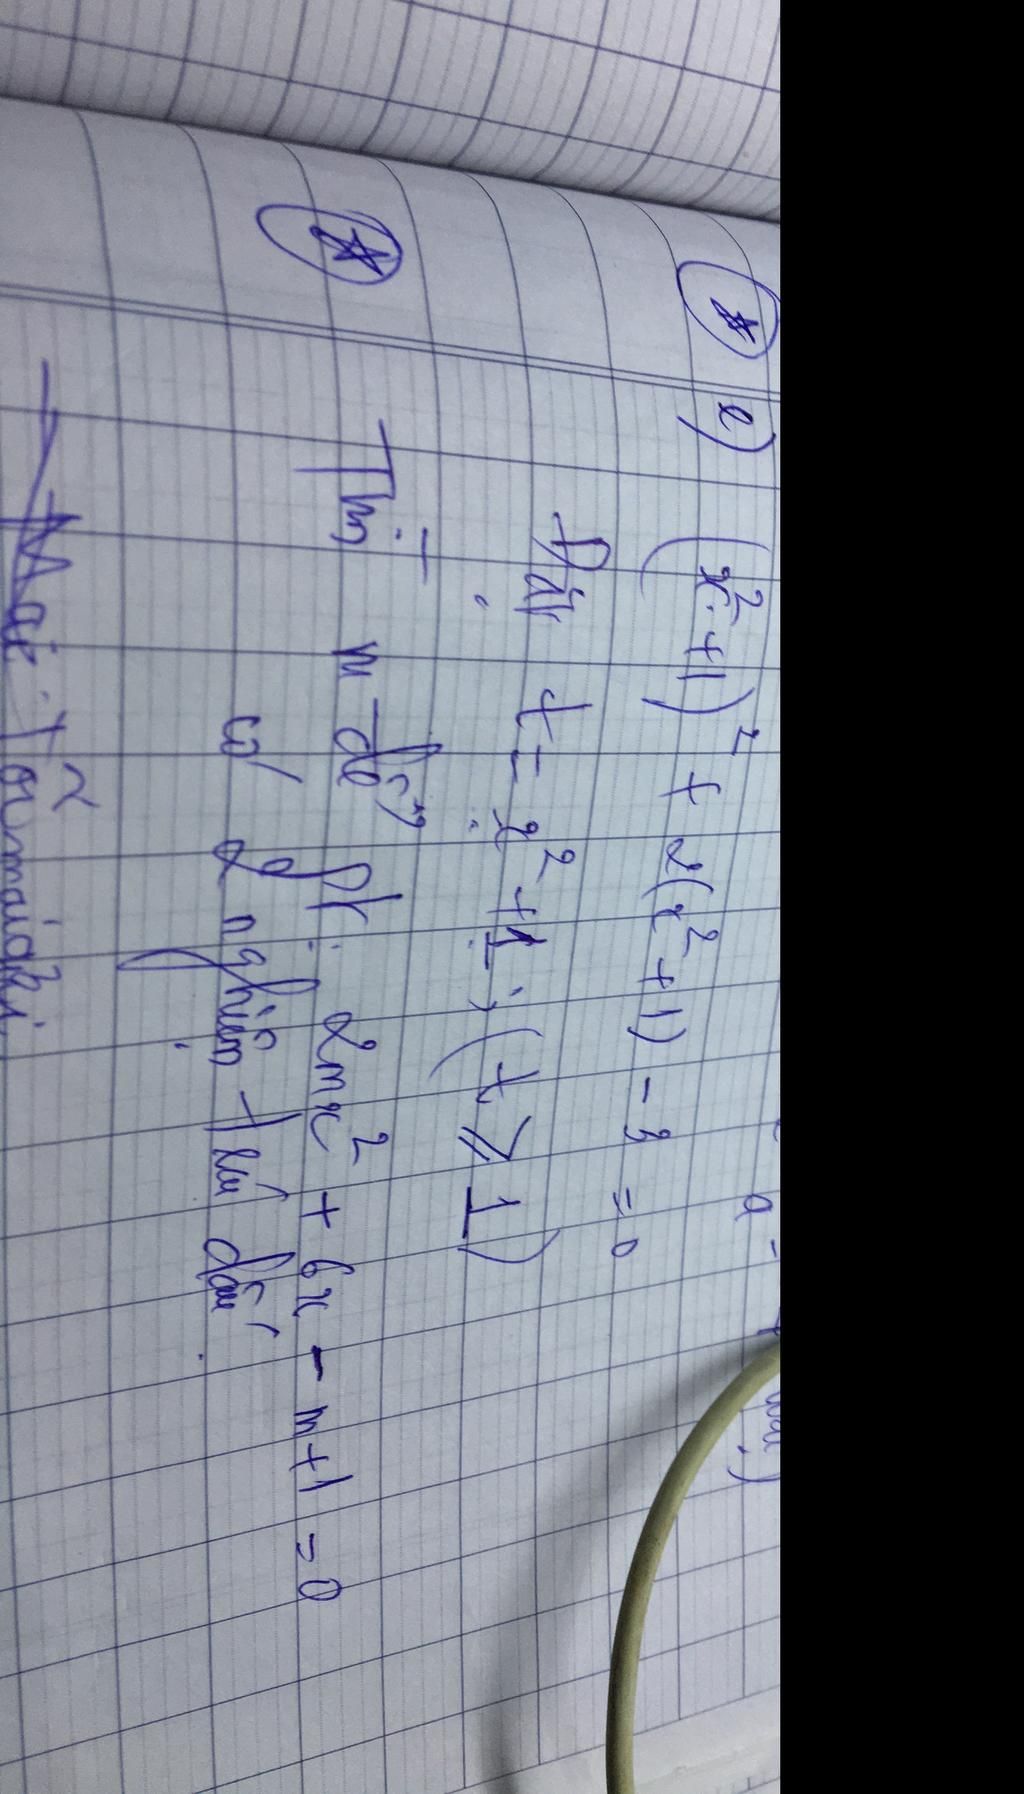 a =
e) (x²+1)² + 2(x²+1) - 3 = 0
Đặt t = x² + 1 ; (t ⩾ 1)
Tìm m để pt: 2mx² + 6x - m+1 = 0
có 2 nghiệm trái dấu.